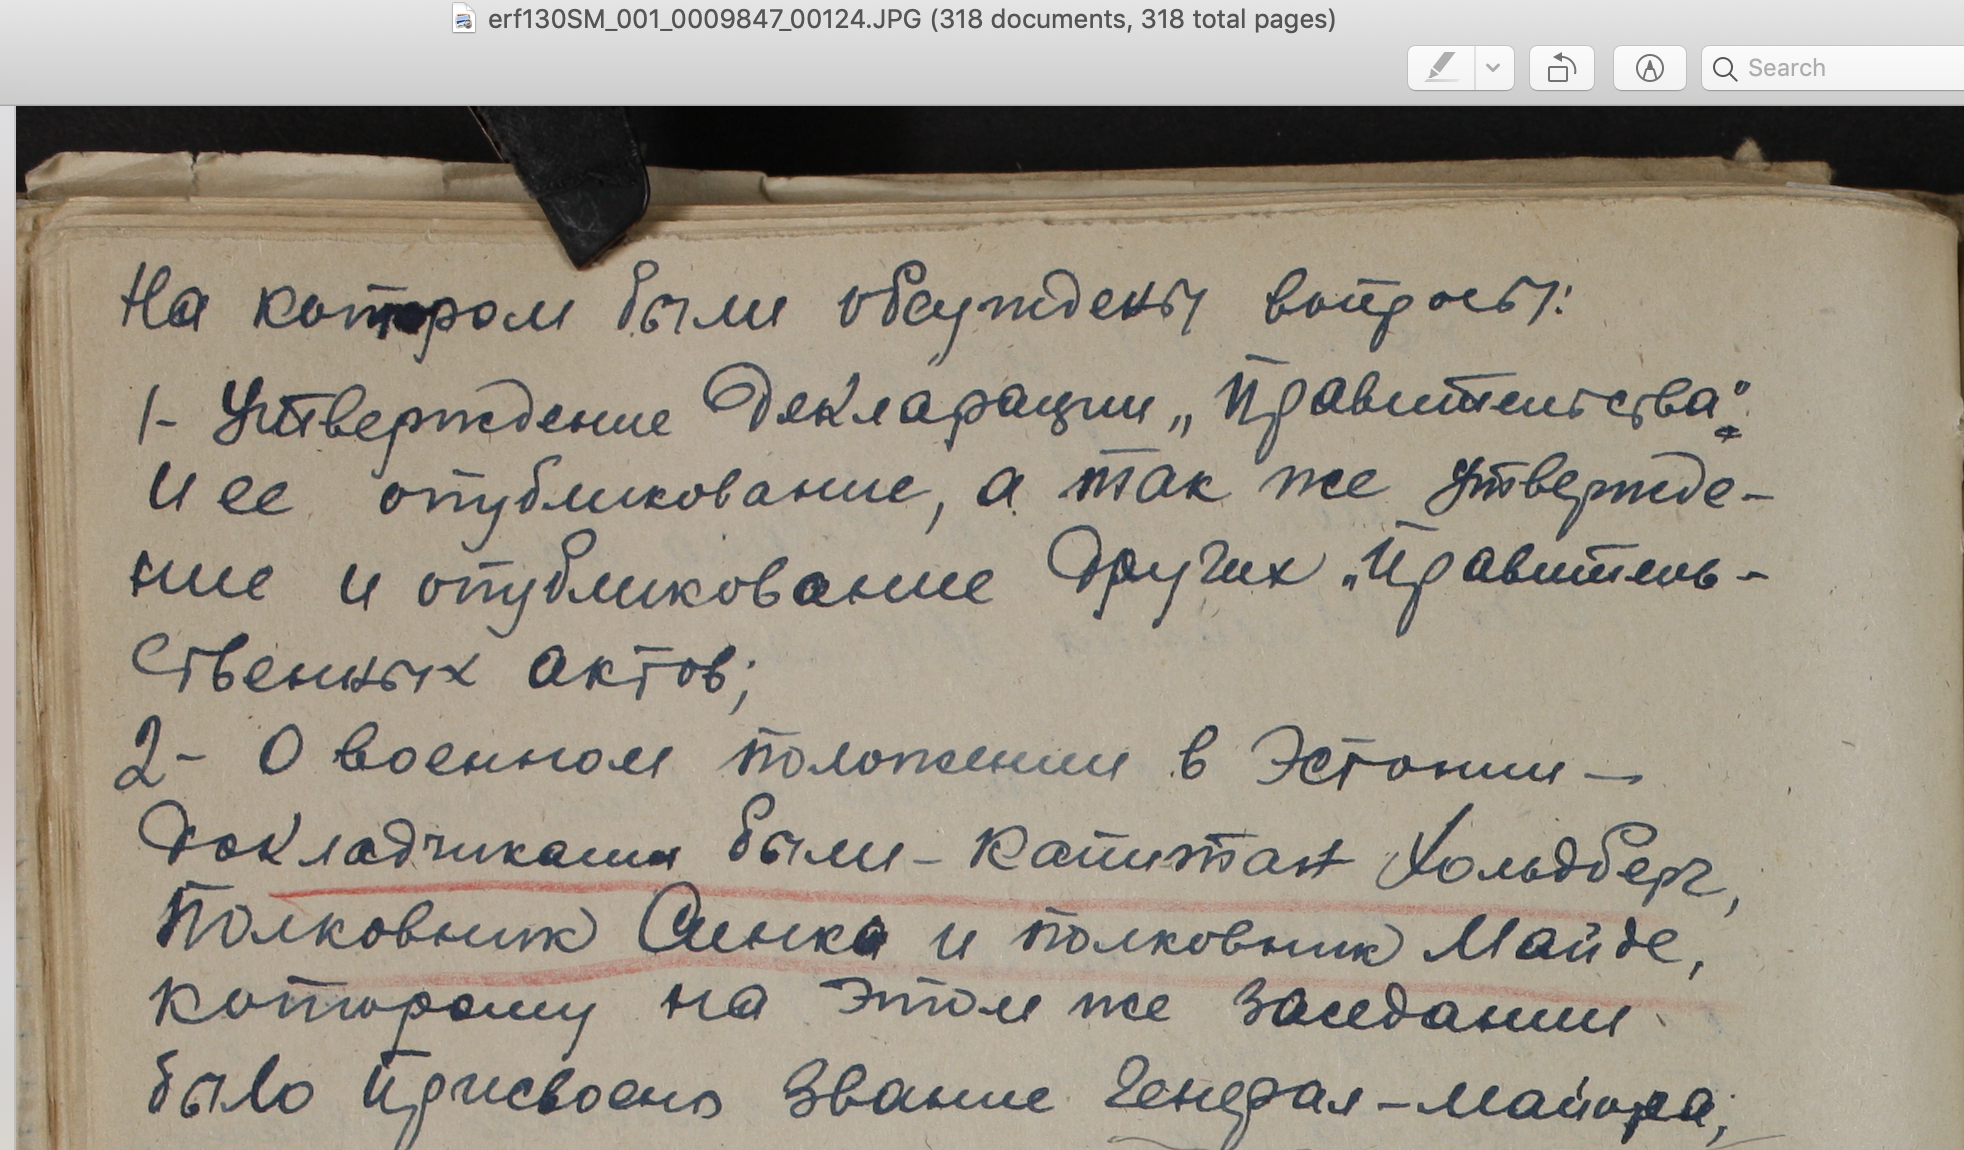 erf130SM_001_0009847_00124.JPG (318 documents, 318 total pages)
Search
На котором были обсуждены вопросы:
1- Утверждение Декларации „Правительства"
и ее опубликование, а так же утвержде-
ние и опубликование других „Правитель-
ственных актов;
2- О военном положении в Эстонии –
докладчиками были – капитан Хольдберг,
Полковник Синка и полковник Майде,
которому на этом же заседании
было присвоено звание Генерал-майора;